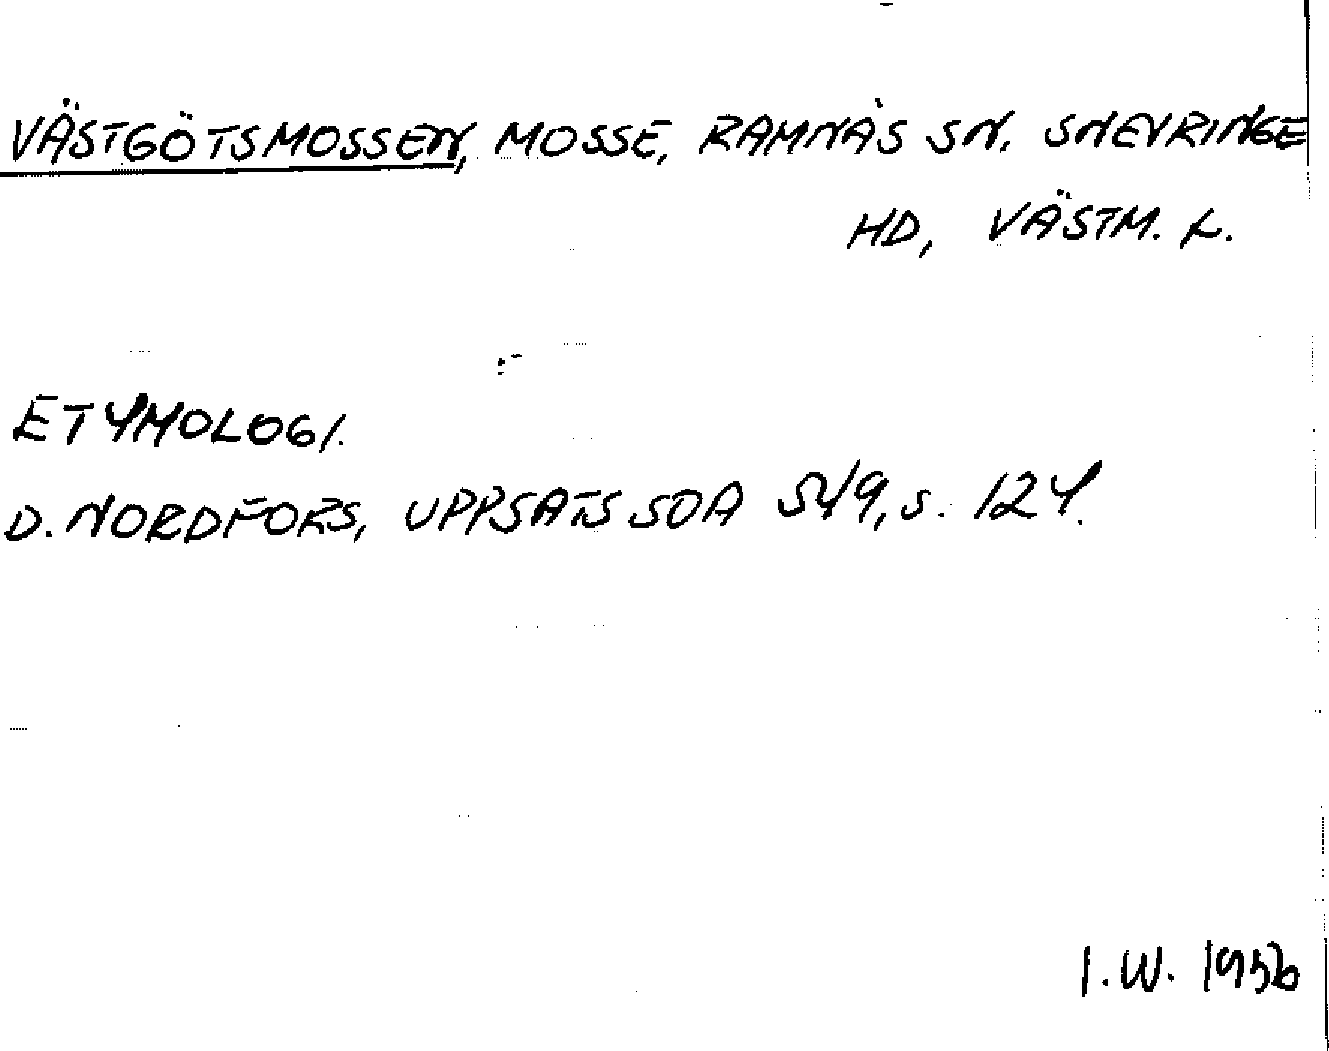 VÄSTGÖTSMOSSEN, MOSSE, RAMNÄS SN. SNEVRINGE
HD, VÄSTM. L.
ETYMOLOGI.
D. NORDFORS, UPPSATS SOA 549, s. 124.
I.W. 1956